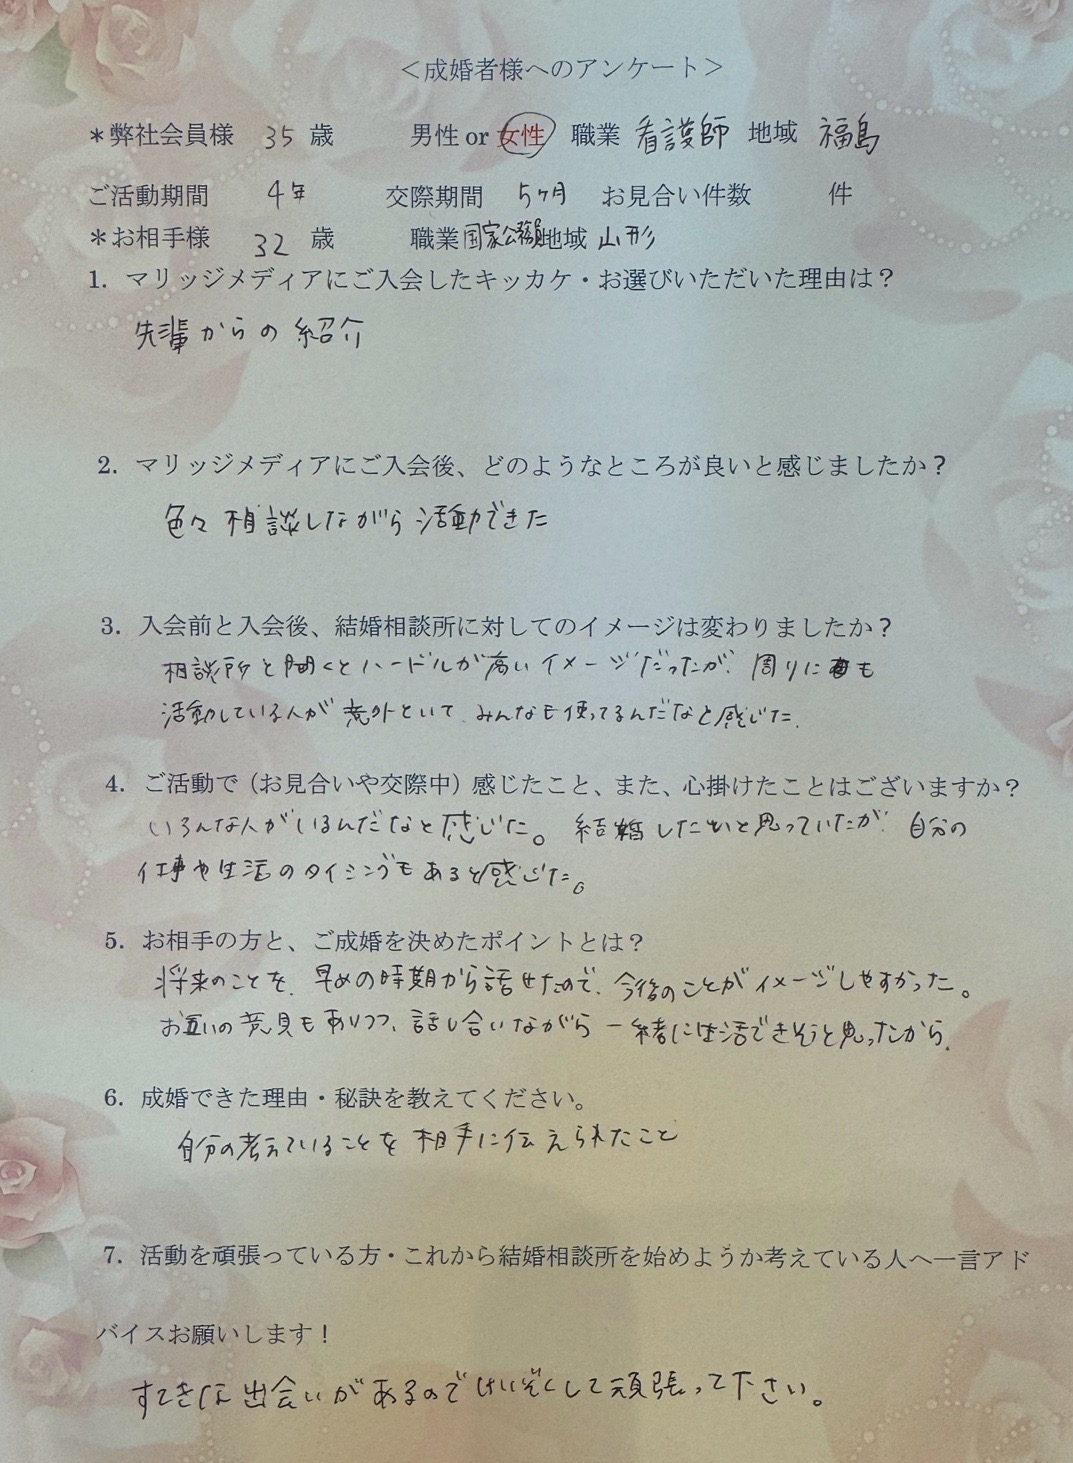 ＜成婚者様へのアンケート＞
＊弊社会員様 35 歳 男性 or 女性 職業 看護師 地域 福島
ご活動期間 4年 交際期間 5ヶ月 お見合い件数 件
＊お相手様 32 歳 職業 国家公務員 地域 山形
1. マリッジメディアにご入会したキッカケ・お選びいただいた理由は？
先輩からの紹介
2. マリッジメディアにご入会後、どのようなところが良いと感じましたか？
色々相談しながら活動できた
3. 入会前と入会後、結婚相談所に対してのイメージは変わりましたか？
相談所と聞くとハードルが高いイメージだったが、周りにも
活動している人が意外といて、みんなも使ってるんだなと感じた。
4. ご活動で（お見合いや交際中）感じたこと、また、心掛けたことはございますか？
いろんな人がいるんだなと感じた。結婚したいと思っていたが、自分の
仕事や生活のタイミングもあると感じた。
5. お相手の方と、ご成婚を決めたポイントとは？
将来のことを、早めの時期から話せたので、今後のことがイメージしやすかった。
お互いの意見もありつつ、話し合いながら一緒に生活できそうと思ったから。
6. 成婚できた理由・秘訣を教えてください。
自分の考えていることを相手に伝えられたこと
7. 活動を頑張っている方・これから結婚相談所を始めようか考えている人へ一言アド
バイスお願いします！
すてきな出会いがあるのでけいぞくして頑張って下さい。